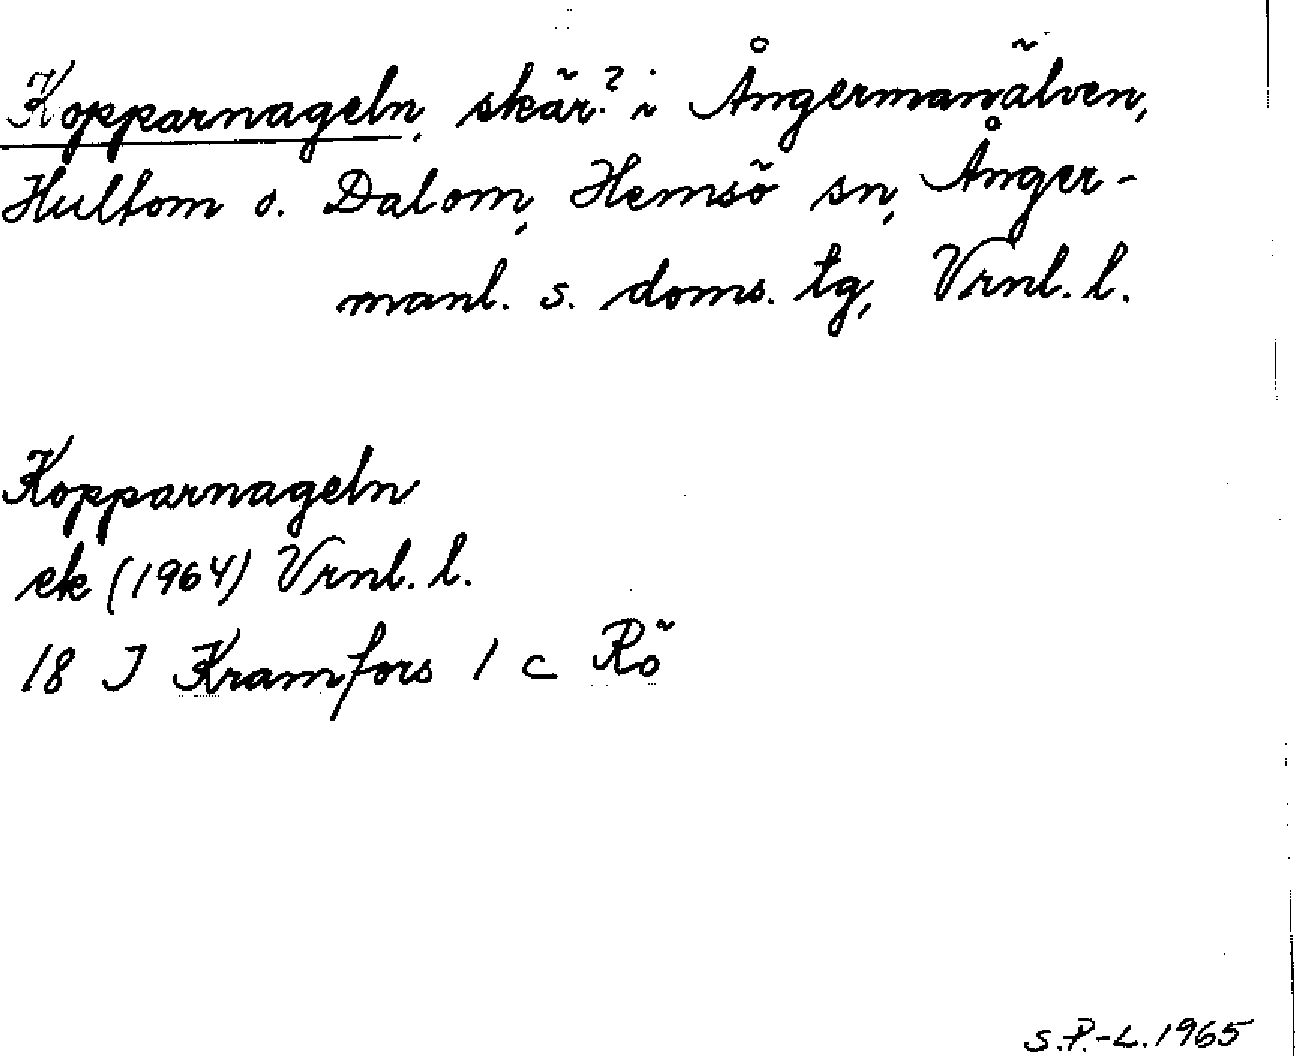 Kopparnageln, skär? i Ångermanälven,
Hultom o. Dalom, Hemsö sn, Ånger-
manl. s. doms. tg, Vrnl. l.
Kopparnageln
ek (1964) Vrnl. l.
18 I Kramfors 1 c Rö
S.P.-L. 1965